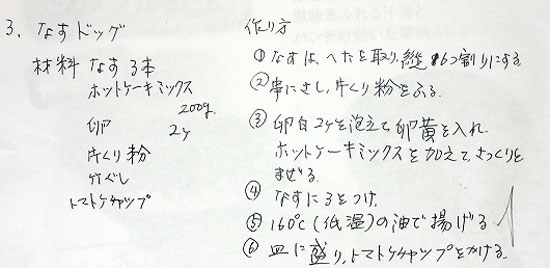 3. なすドッグ
材料 なす 3本
ホットケーキミックス
200g
卵 2ケ
片くり粉
竹ぐし
トマトケチャップ
作り方
① なすは、へたを取り、縦 6つ割りにする
② 串にさし、片くり粉をふる。
③ 卵白2ケを泡立て、卵黄を入れ
ホットケーキミックスを加えて、さっくりと
まぜる。
④ なすに3をつけ、
⑤ 160℃(低温)の油で揚げる
⑥ 皿に盛り、トマトケチャップをかける。